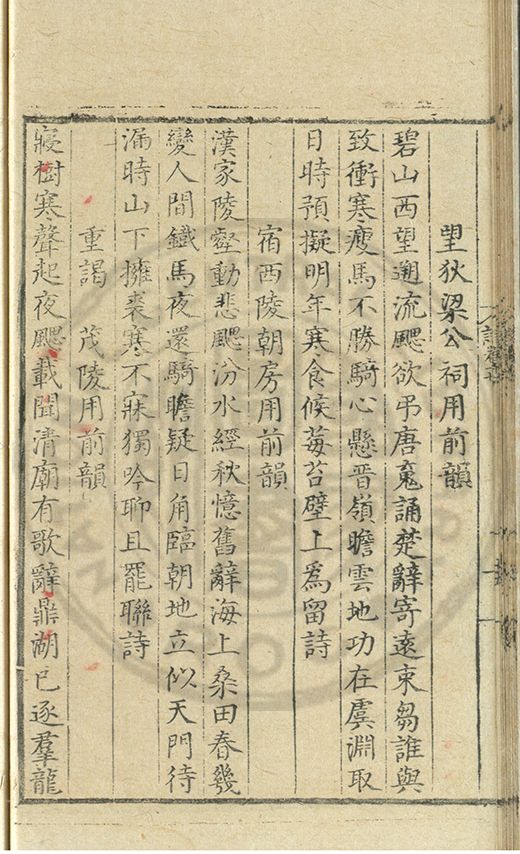 望狄梁公祠用前韻
碧山西望遡流颸欲弔唐䰟誦楚辭寄遠束芻誰與
致衝寒瘦馬不勝騎心懸晋嶺瞻雲地功在虞淵取
日時預擬明年寒食候莓苔壁上爲留詩
宿西陵朝房用前韻
漢家陵壑動悲颸汾水經秋憶舊辭海上桑田春幾
變人間鐵馬夜還騎瞻疑日角臨朝地立似天門待
漏時山下擁裘寒不寐獨吟聊且罷聯詩
重謁　茂陵用前韻
寢樹寒聲起夜颸載聞清廟有歌辭鼎湖已逐羣龍